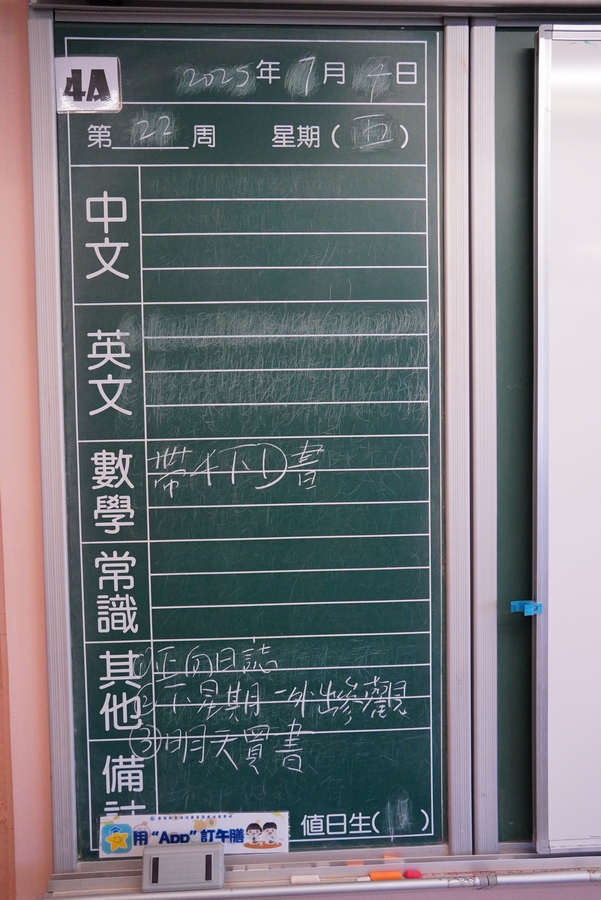 4A
2025年7月4日
第22周 星期(五)
中文
英文
數學 帶4下①書
常識
其他 ①正向日誌
②下星期一外出參觀
③明天買書
備
用“App”訂午膳
值日生( )